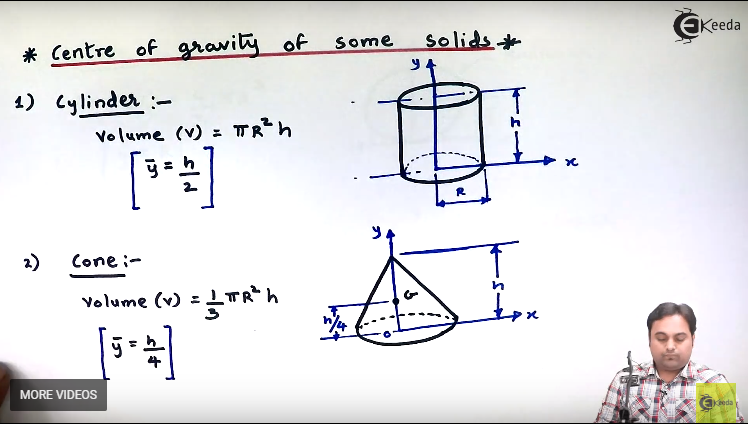 * Centre of gravity of some solids *
Ekeeda
1) Cylinder :-
Volume (V) = πR² h
[ȳ = h/2]
y
h
x
R
2) Cone :-
Volume (V) = 1/3 πR² h
[ȳ = h/4]
y
G
h
h/4
o
x
MORE VIDEOS
Ekeeda